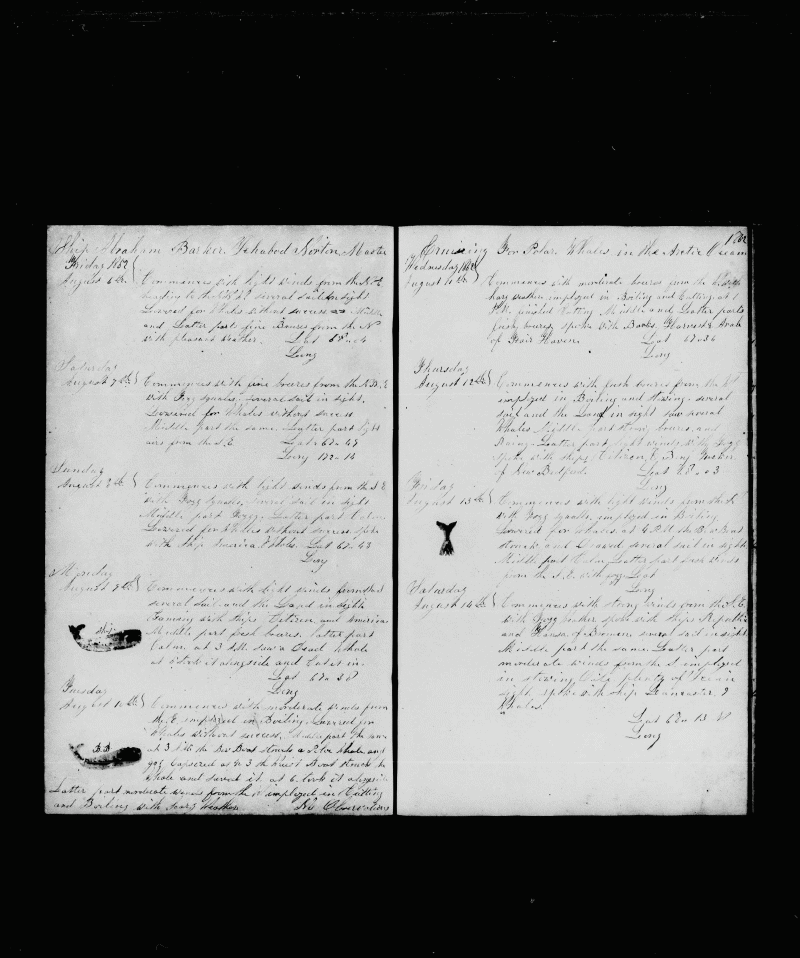 Ship Abraham Barker. Ichabod Norton Master
Friday 1852
August 6th Commences with light winds from the
heading to the several sail in sight
Lowered for Whales without success Middle
and Latter part fine Breezes from the N
with pleasant weather. Lat 68-04
Long
Saturday
August 7th Commences with fine breezes from the N.
with Fogg squalls, several sail in sight.
Lowered for Whales without success
Middle part the same. Latter part light
airs from the S.E Lat 67-49
Long 172-14
Sunday
August 8th Commences with light winds from the S.E
with Fogg squalls, several sail in sight
Middle part Fogg. Latter part Calm.
Lowered for Whales without success spoke
with ship America Whales. Lat 67-43
Long
Monday
August 9th Commences with light winds from the
several sail and the Land in sight
Gamming with ships Citizen, and America
Middle part fresh breezes. latter part
Calm. at 3 AM. saw a Dead Whale
at 5 took it alongside and Cut it in-
Lat 67-38
Long
Tuesday
August 10th Commences with moderate winds from
the E. employed in Boiling. Lowered for
Whales without success. Middle part the same
at 3 the Bow Boat struck a Whale and
got Capsized at 3 the Boat struck the
whale and saved it. at 6 took it alongside
B.B
Latter part moderate winds from the employed in Cutting
and Boiling with weather No Observations
Cruising For Polar Whales in the Arctic Ocean
Wednesday 1852
August 11th Commences with moderate breezes from the
hazy weather employed in Boiling and Cutting. at 1
P.M. finished Cutting Middle and Latter parts
fresh breezes, spoke with Barks, Harvest & Arab
of Fair Haven. Lat 67-36
Long
Thursday
August 12th Commences with fresh breezes from the
employed in Boiling and several
sail and the Land in sight saw several
Whales Middle part strong breezes, and
Rainy. Latter part light winds with Fogg
Spoke with ships, Citizen, & Benj Tucker.
of New Bedford. Lat 68-03
Long
Friday
August 13th Commences with light winds from the
with Fogg squalls employed in Boiling
Lowered for Whales, at 4 P.M. the Boat
struck and several sail in sight
Middle part Calm Latter part
from the S.E. with Lat
Long
Saturday
August 14th Commences with strong winds from the S.E.
with Fogg weather spoke with ships Republic
and Hansa, of Bremen. several sail in sight
Middle part the same. Latter part
moderate winds from the S employed
in stowing Oil, plenty of Ice in
sight, spoke with Ship Lancaster, 9
Whales.
Lat 67-13 N
Long